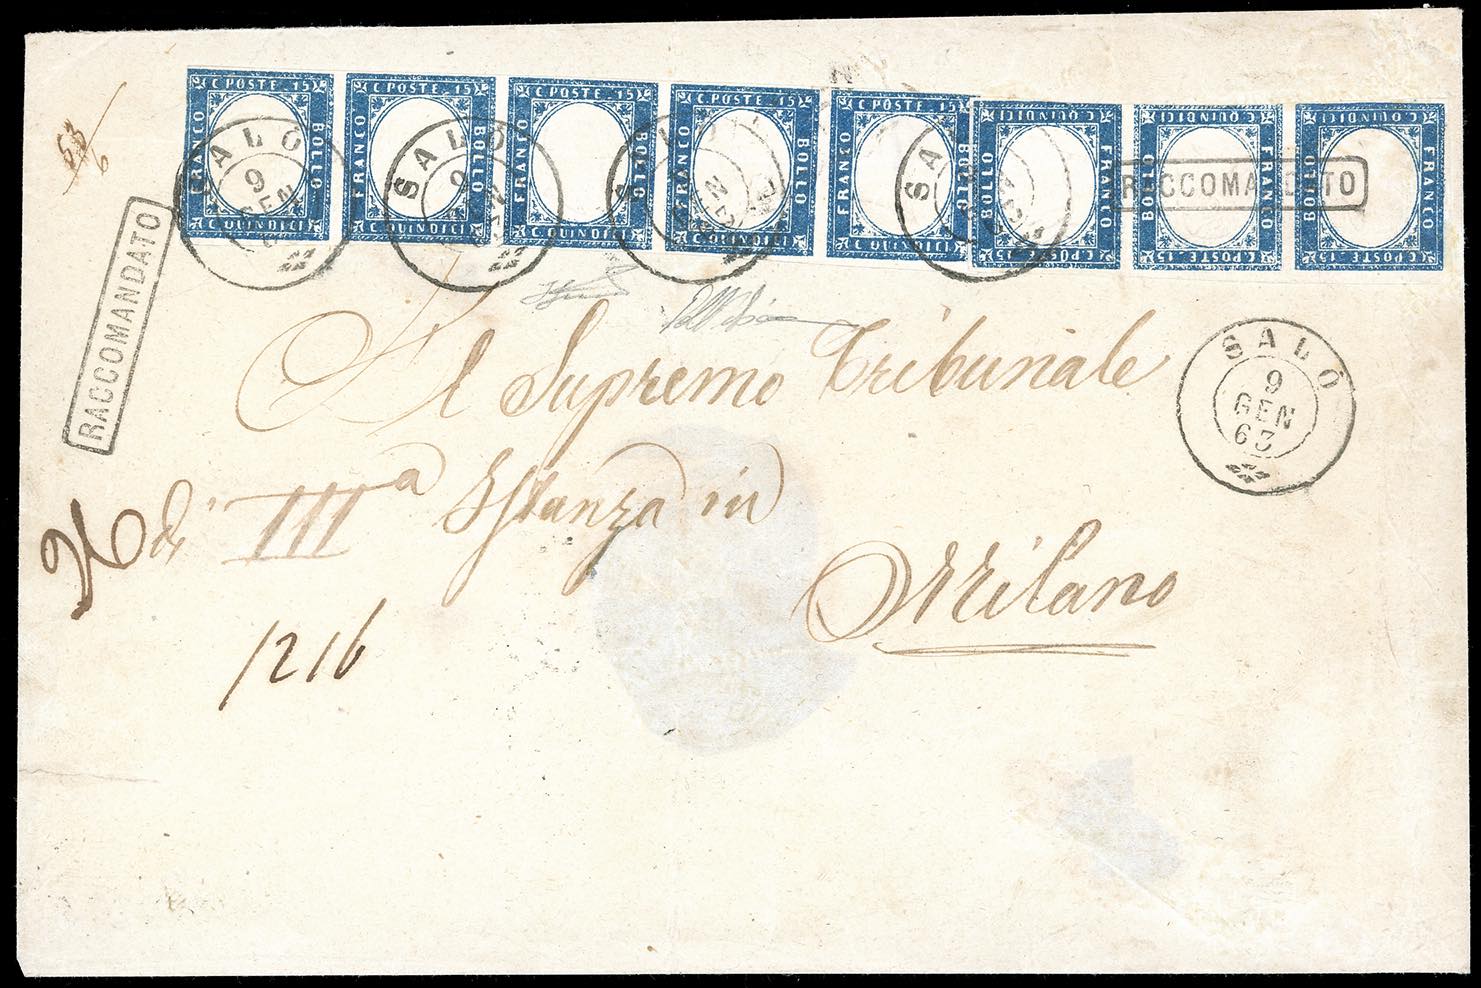 C. POSTE 15 FRANCO BOLLO C. QUINDICI
C. POSTE 15 FRANCO BOLLO C. QUINDICI
C. POSTE 15 FRANCO BOLLO C. QUINDICI
C. POSTE 15 FRANCO BOLLO C. QUINDICI
C. POSTE 15 FRANCO BOLLO C. QUINDICI
C. POSTE 15 FRANCO BOLLO C. QUINDICI
C. POSTE 15 FRANCO BOLLO C. QUINDICI
C. POSTE 15 FRANCO BOLLO C. QUINDICI
SALÒ 9 GEN
SALÒ 9
SALÒ GEN
SA
RACCOMANDATO
RACCOMANDATO
Al Supremo Tribunale
SALÒ
9
GEN
63
di IIIa Istanza in
Milano
1216